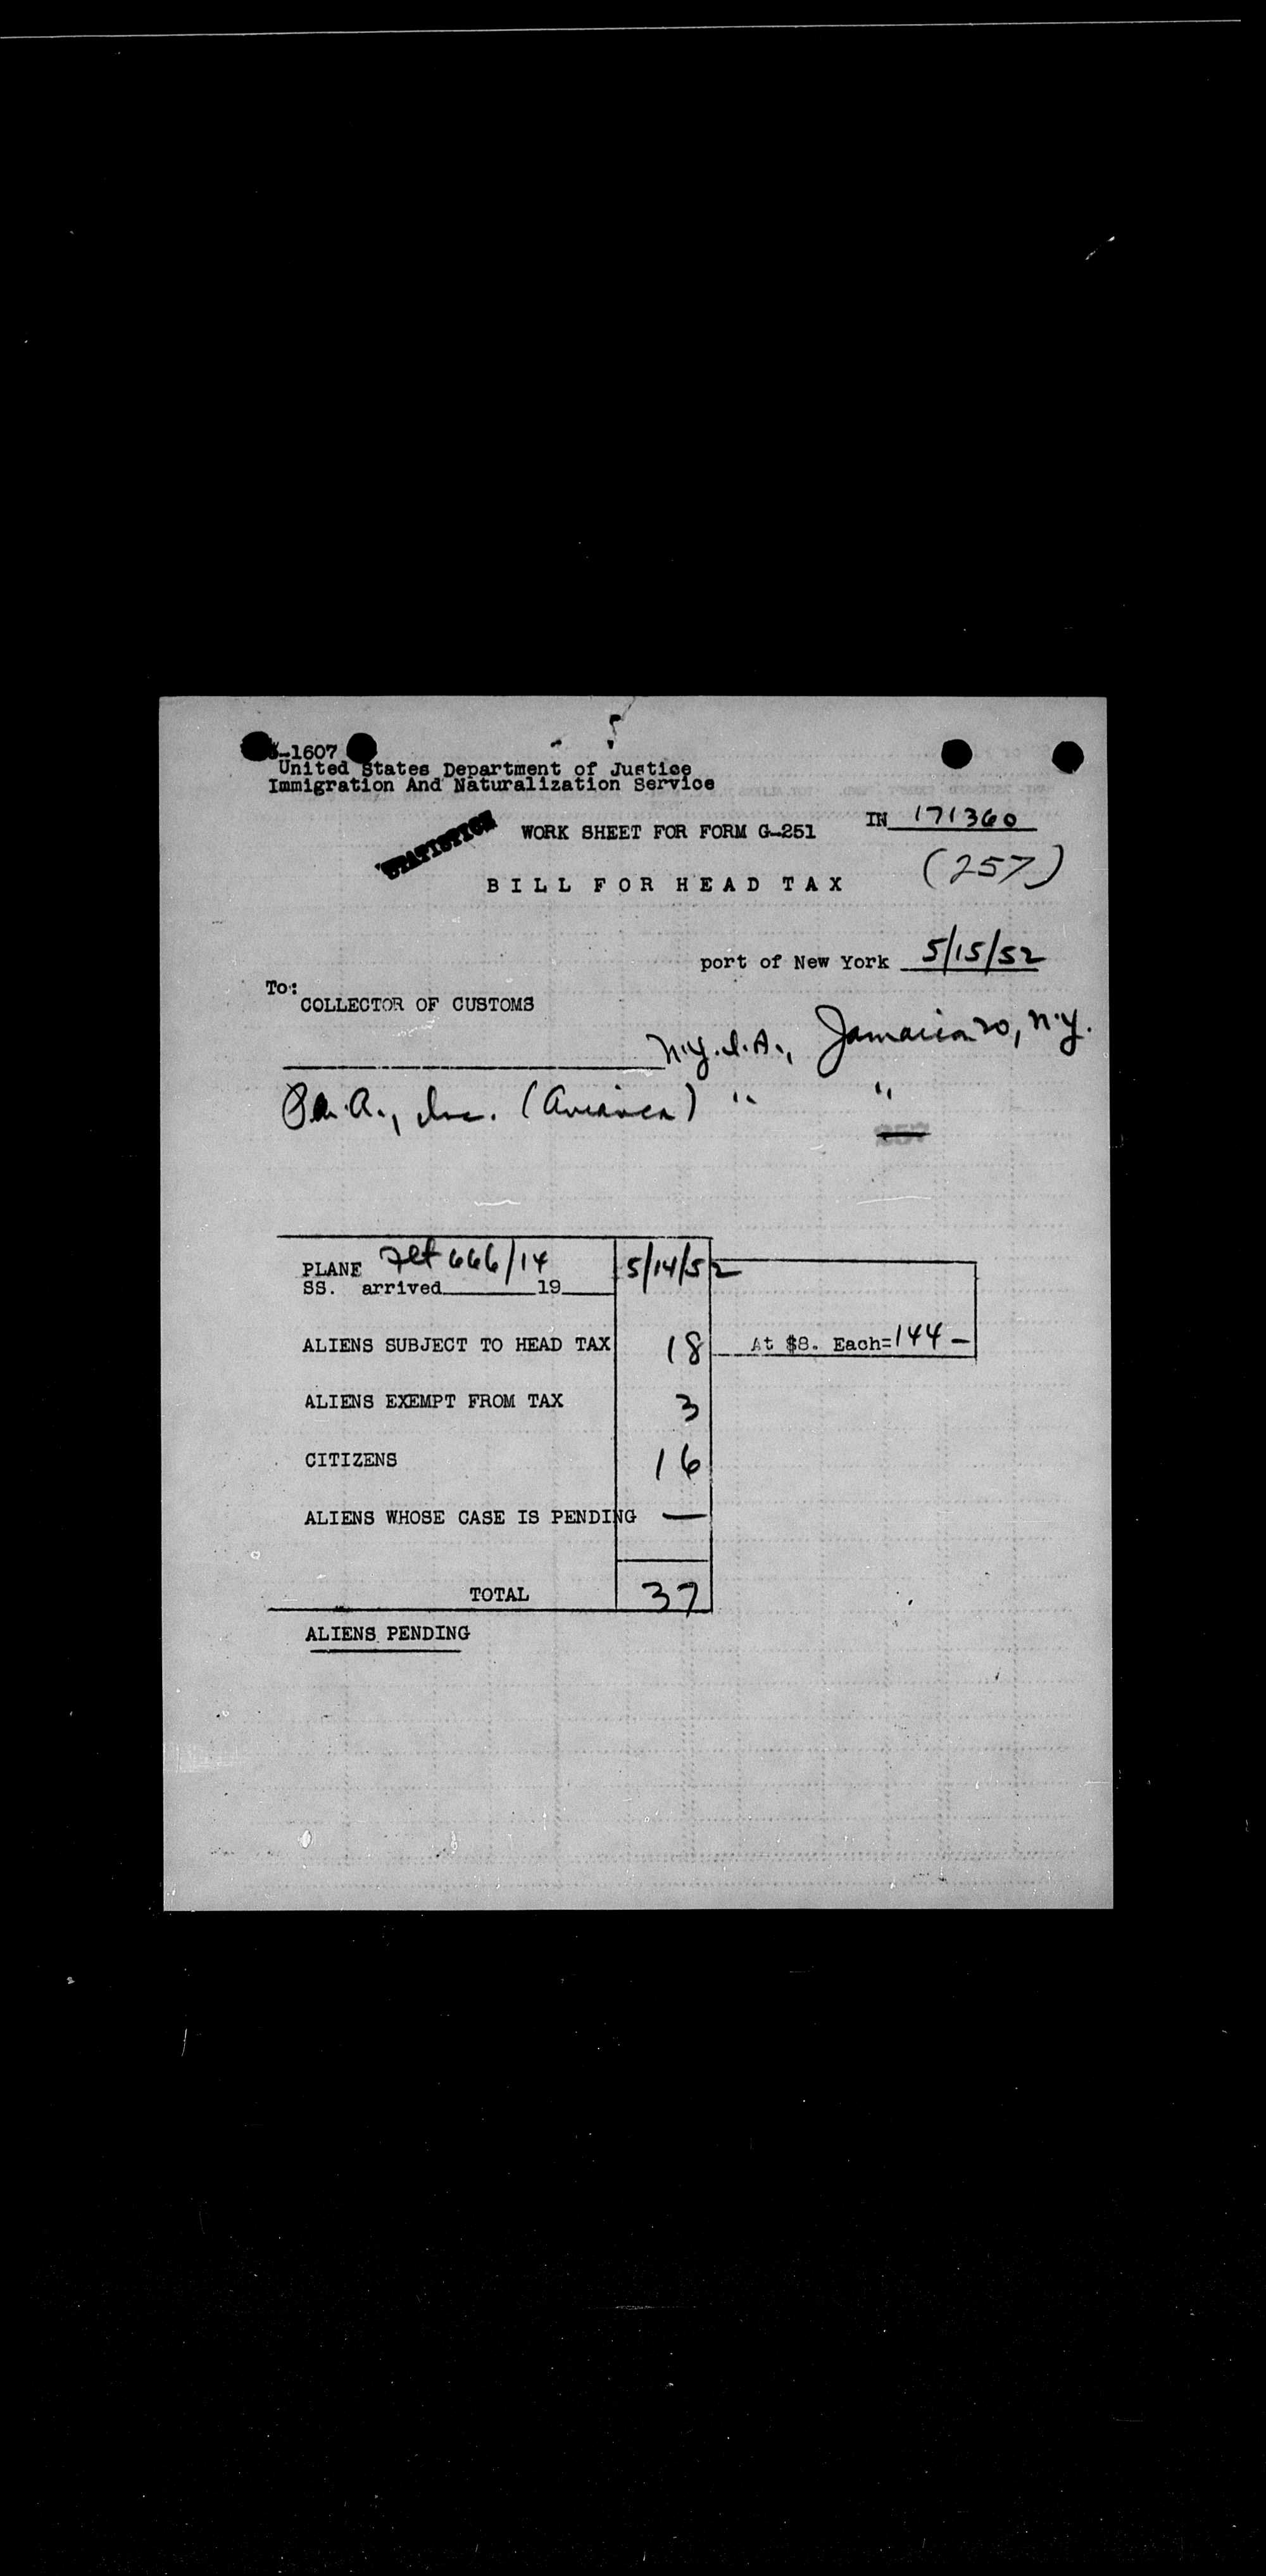 -1607
United States Department of Justice
Immigration And Naturalization Service
STATISTICS
WORK SHEET FOR FORM G-251
IN 171360
(257)
BILL FOR HEAD TAX
port of New York 5/15/52
To:
COLLECTOR OF CUSTOMS
N.Y.I.A., Jamaica 20, N.Y.
P.A.A., Inc. (Avianca) " "
257
PLANE Flt 666/14 5/14/52
SS. arrived 19
ALIENS SUBJECT TO HEAD TAX 18 At $8. Each=144-
ALIENS EXEMPT FROM TAX 3
CITIZENS 16
ALIENS WHOSE CASE IS PENDING —
TOTAL 37
ALIENS PENDING